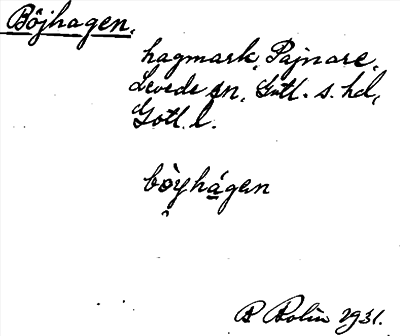 Böjhagen.
hagmark, Pajnare,
Levede sn, Gotl. s. hd,
Gotl. l.
bòyhágen
B Bolin 1931.